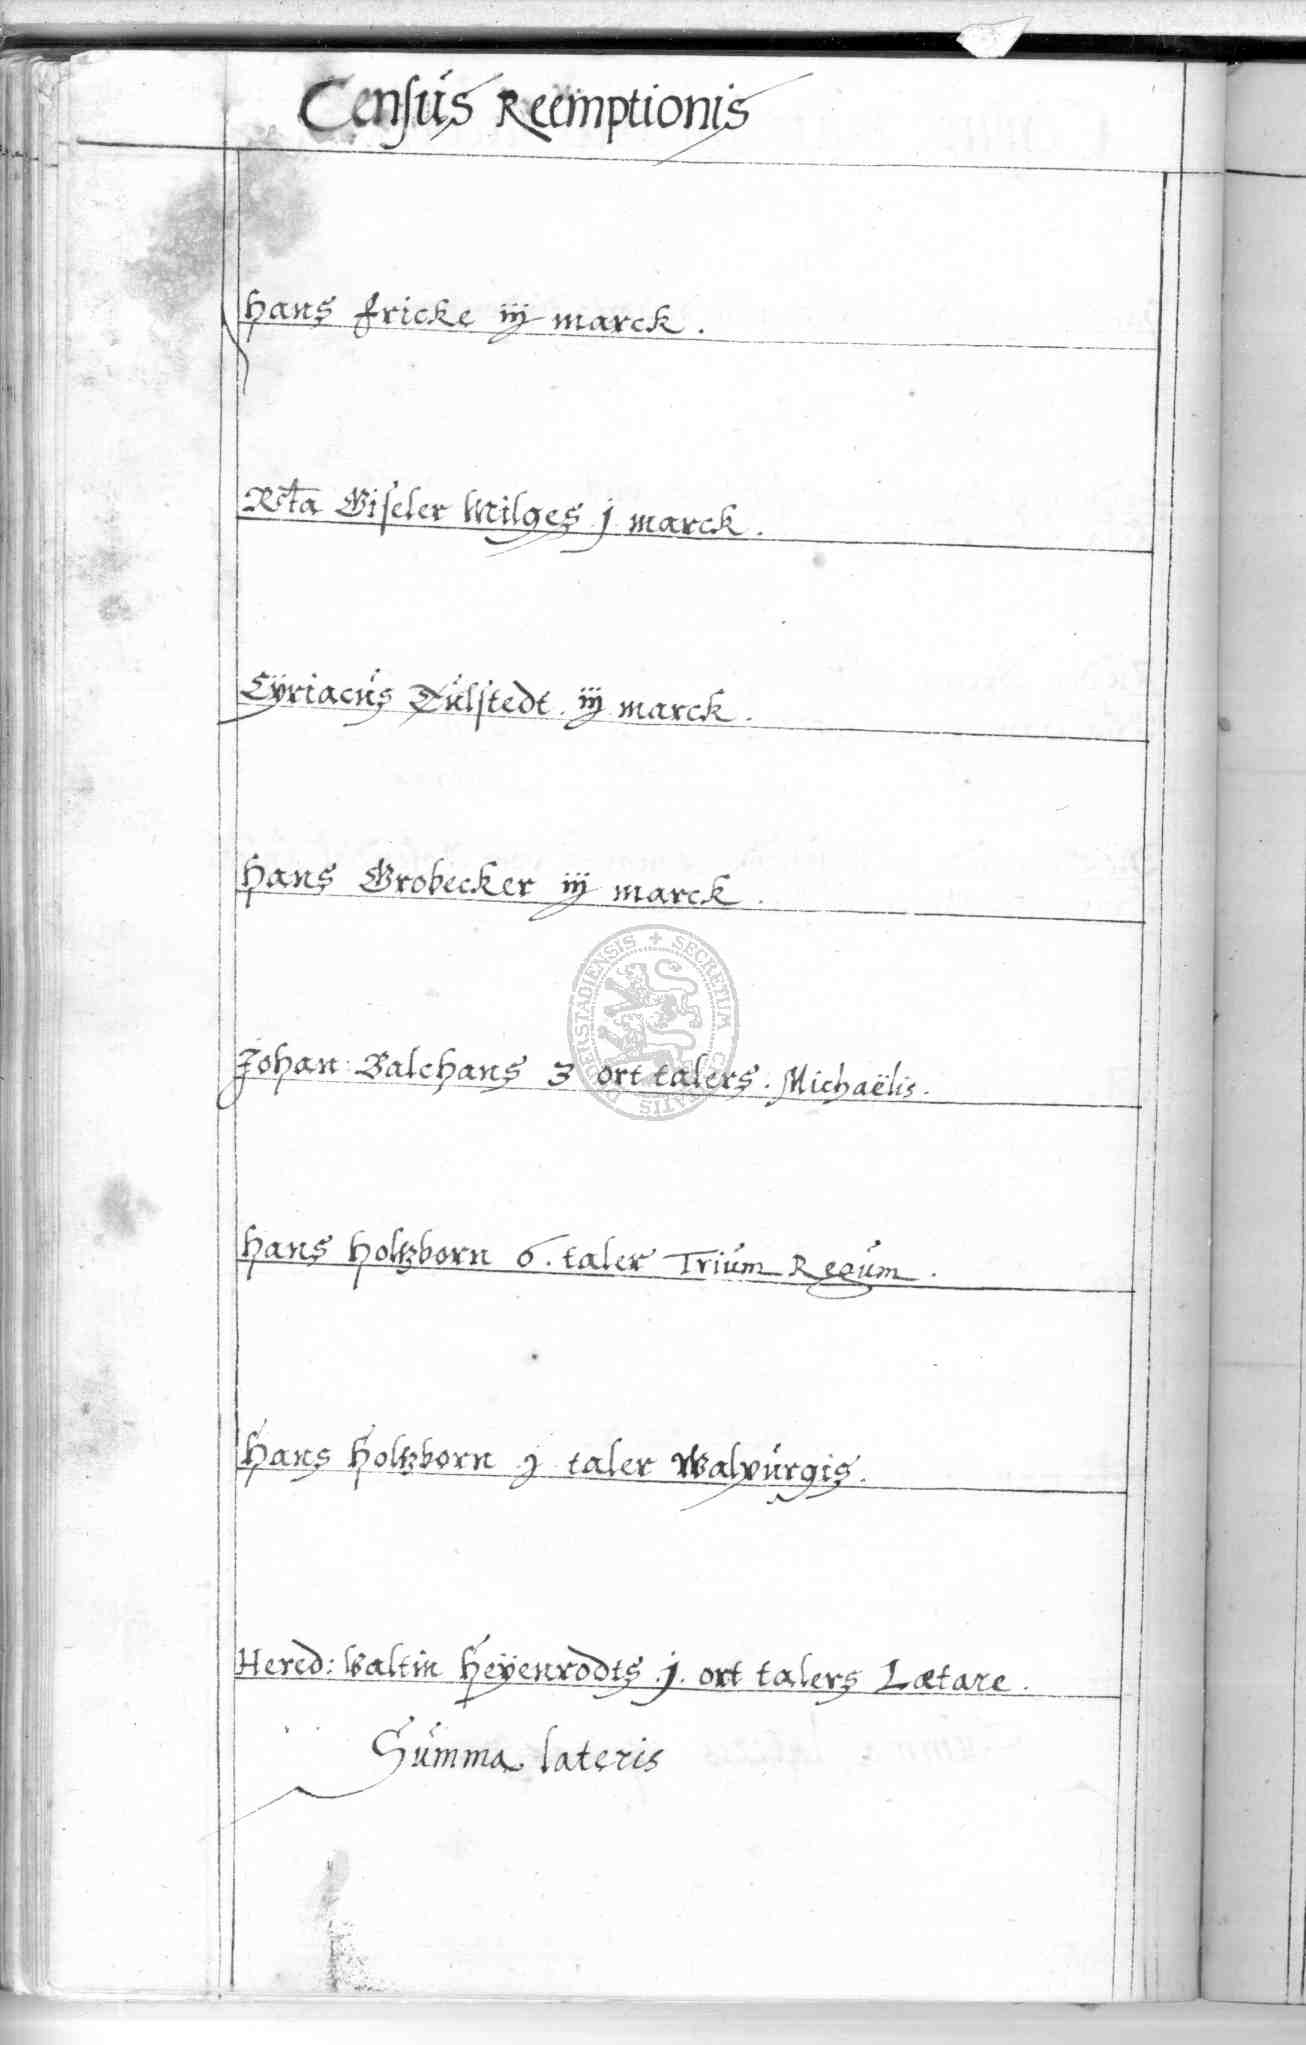 Census Reemptionis
Hans Fricke iij marck.
Rcta Giseler Milges j marck.
Cÿriacus Tulstedt. iij marck.
Hans Grobecker iij marck.
Johan: Balchans 3 ort talers. Michaëlis.
Hans Holtzborn 6. taler Trium Regum.
Hans Holtzborn j taler Walpurgis.
Hered: Valtin Heÿenrodts j. ort talers Lætare.
Summa lateris
SECRETUM DERSTADIENSIS